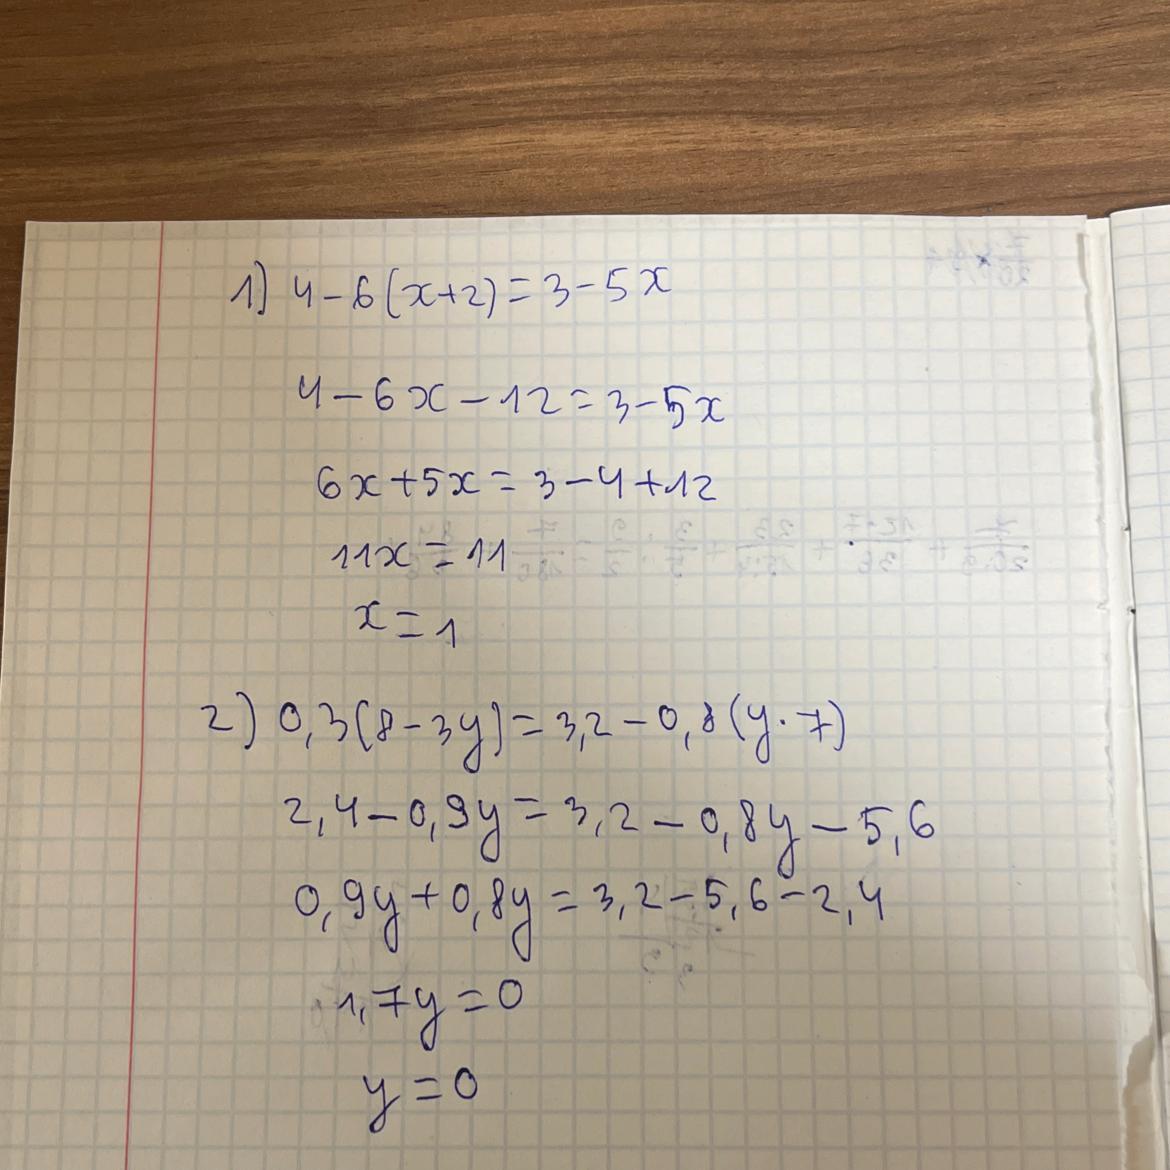 1) 4-6(x+2)=3-5x
4-6x-12=3-5x
6x+5x=3-4+12
11x=11
x=1
2) 0,3(8-3y)=3,2-0,8(y·7)
2,4-0,9y=3,2-0,8y-5,6
0,9y+0,8y=3,2-5,6-2,4
1,7y=0
y=0